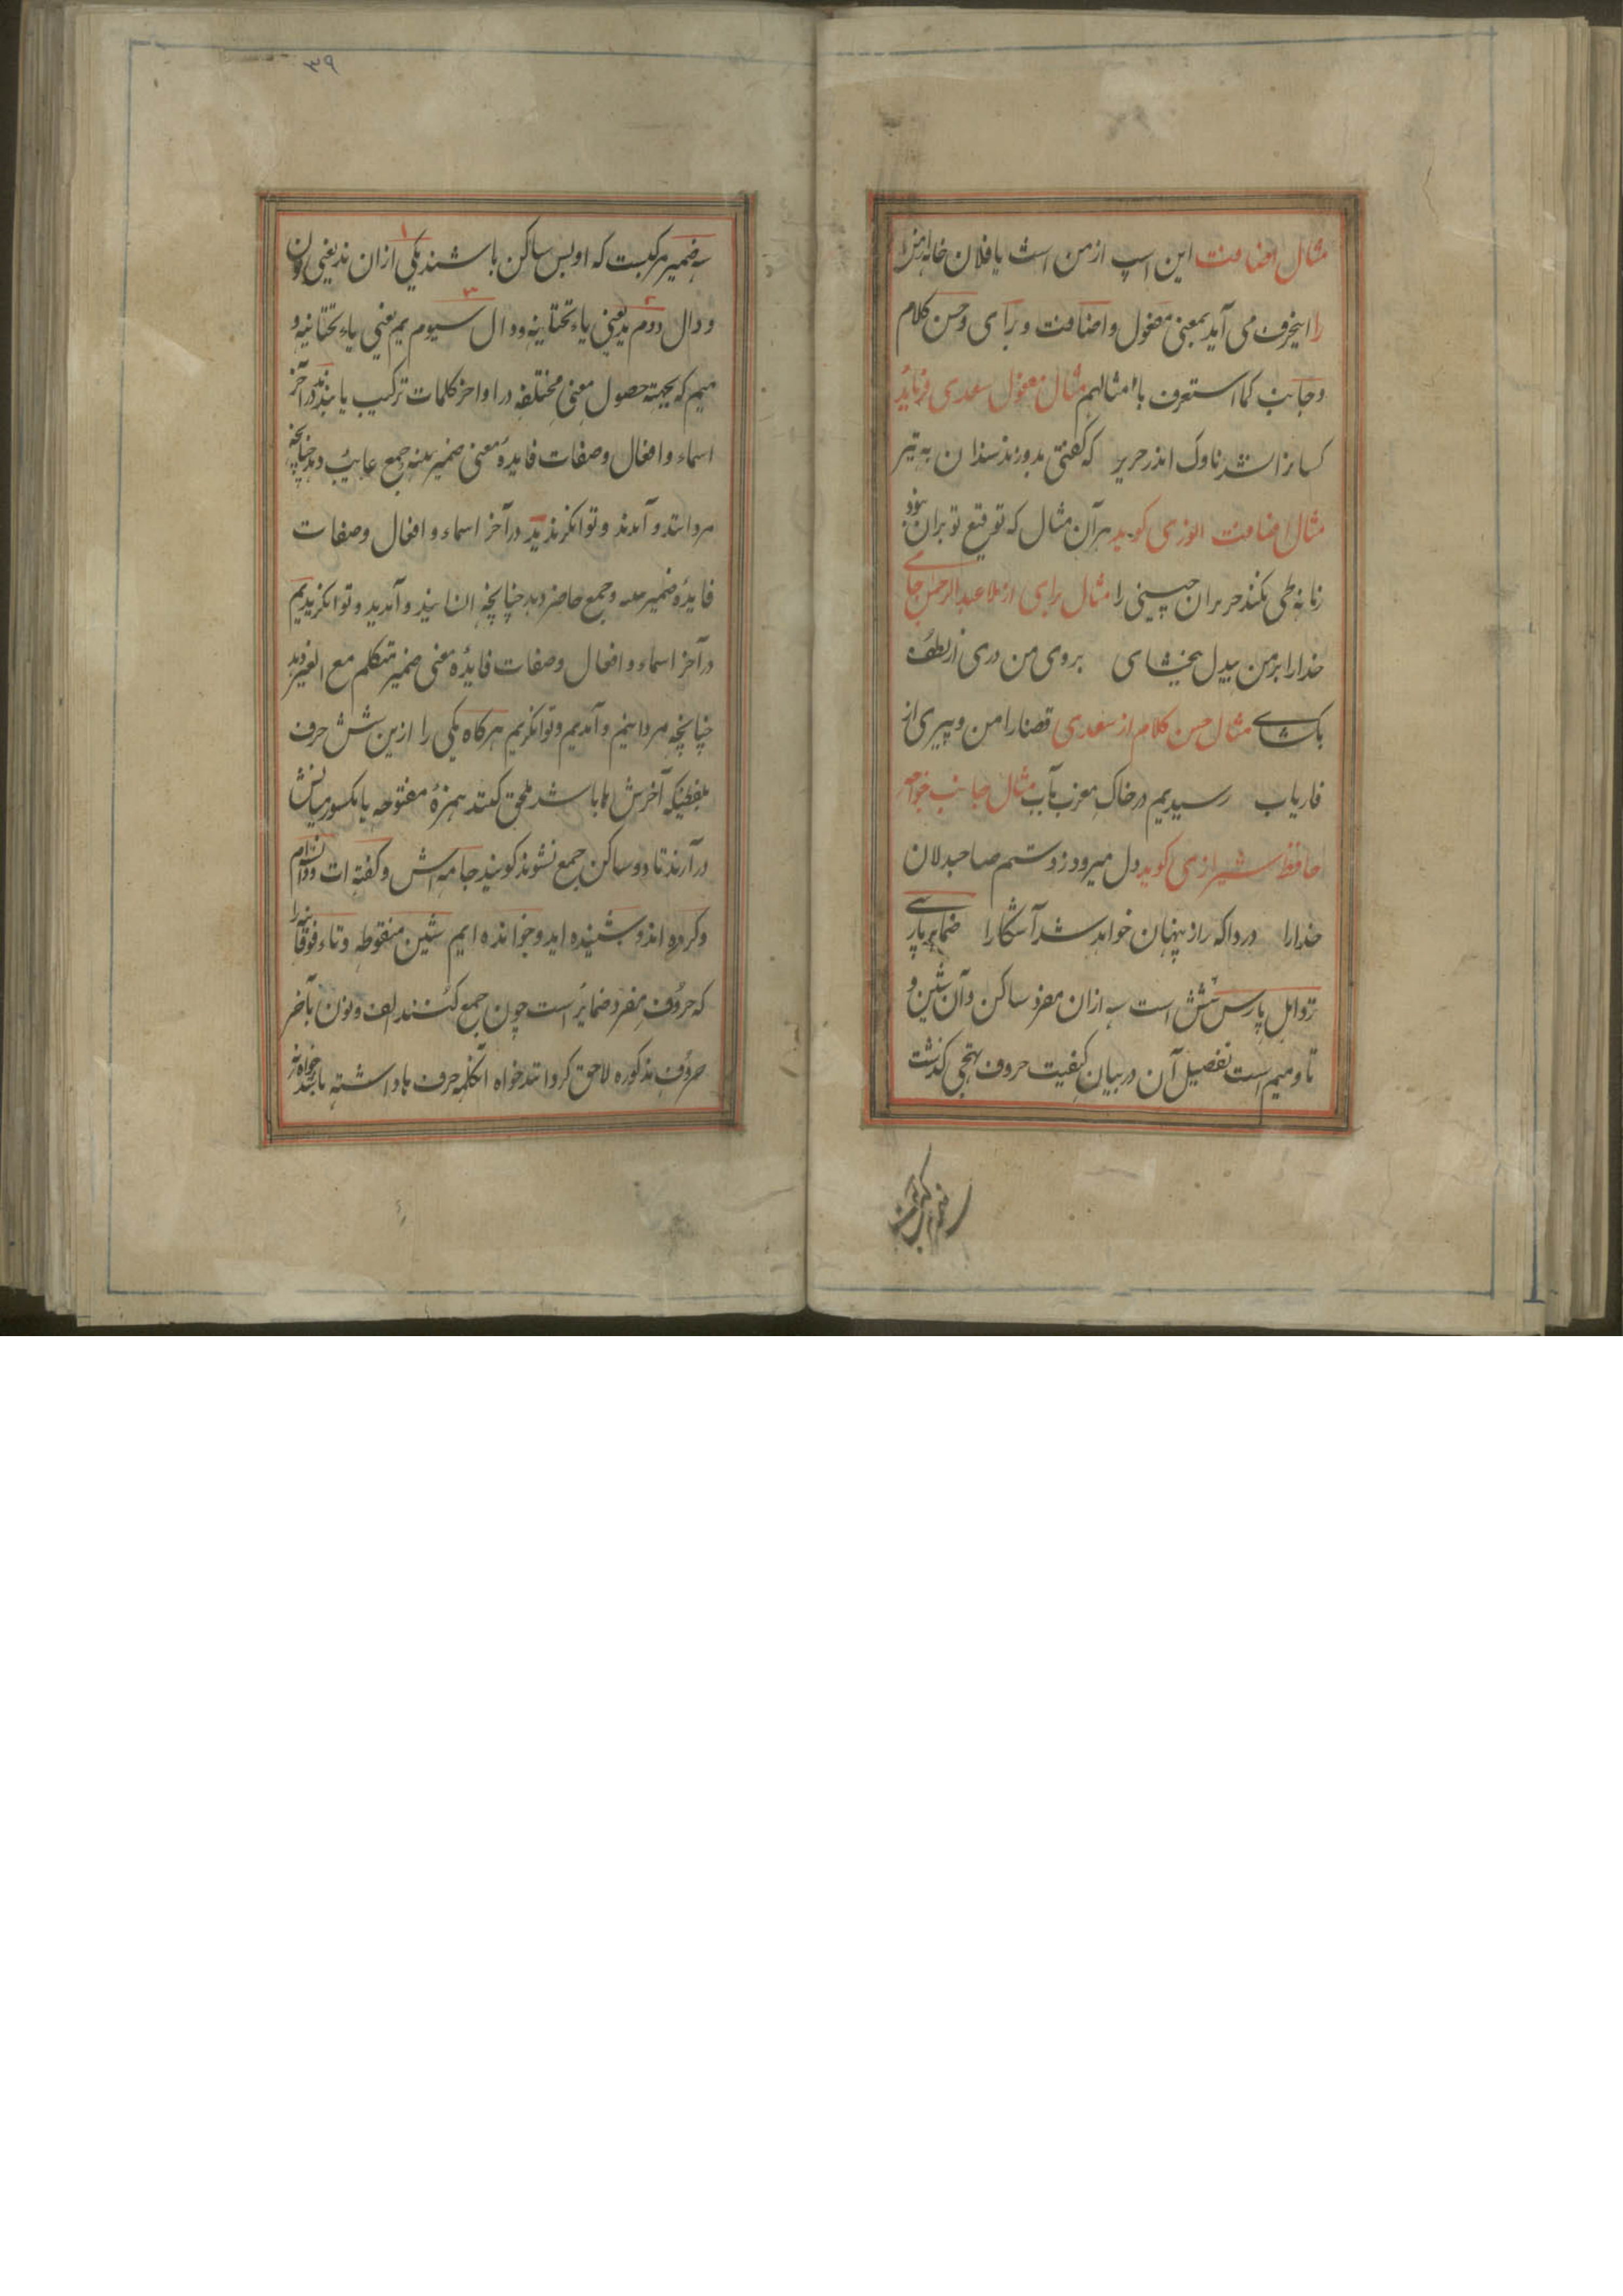 مثال اضافت این اسپ از من است یا فلان خانه از من
را اینحرف می آید بمعنی مفعول و اضافت و برای و حسن کلام
و جانب کما ستعرف بامثالهم مثال مفعول سعدی فرماید
کسانرا نشد ناوک اندر حریر که گفتی بدوزند سندان به تیر
مثال اضافت انوری کوید هر آن مثال که توقیع تو بران نبود
زمانه طی نکند جز برای حینی را مثال برای از ملا عبدالرحمن جامی
خدارا بر من بیدل ببخشای بروی من دری از لطف
بکشای مثال حسن کلام از سعدی قضا را من و پیری از
فاریاب رسیدیم در خاک مغرب بآب مثال جانب خواجه
حافظ شیرازی کوید دل میرود ز دستم صاحبدلان
خدارا دردا که راز پنهان خواهد شد آشکارا ضمایر پارسی
نزد اهل پارس شش است سه ازان مفرد ساکن و آن شین و
تا و میم است تفصیل آن در بیان کیفیت حروف تهجی کذشت
۳۹
سه ضمیر مرکبست که اولین ساکن باشند یکی ازان ند یعنی نون
و دال دوم ید یعنی یاء تحتانیه و دال سیوم یم یعنی یاء تحتانیه و
میم که بجهته حصول معنی مختلفه در اواخر کلمات ترکیب یابند ند در آخر
اسماء و افعال و صفات فایدهٔ معنی ضمیر جمع غایب دهد چنانچه
مردانند و آمدند و توانکرند ید در آخر اسماء و افعال و صفات
فایدهٔ ضمیر جمع حاضر دهد چنانچه انسانید و آمدید و توانکرید یم
در آخر اسماء و افعال و صفات فایدهٔ معنی ضمیر متکلم مع الغیر دهد
چنانچه مردانیم و آمدیم و توانکریم هرکاه یکی را ازین شش حرف
بلفظیکه آخرش ها باشد ملحق کنند همزهٔ مفتوحه یا مکسور میانش
در آرند تا دو ساکن جمع نشوند کویند جامه اش و کفته ات و
و کرده اند و شنیده اید و خوانده ایم شین منقوطه و تاء فوقانیه را
که حروف مفرد ضمایر است چون جمع کنند الف و نون بآخر
حروف مذکوره لاحق کردانند خواه آنکلمه حرف ها داشته باشد خواه نه